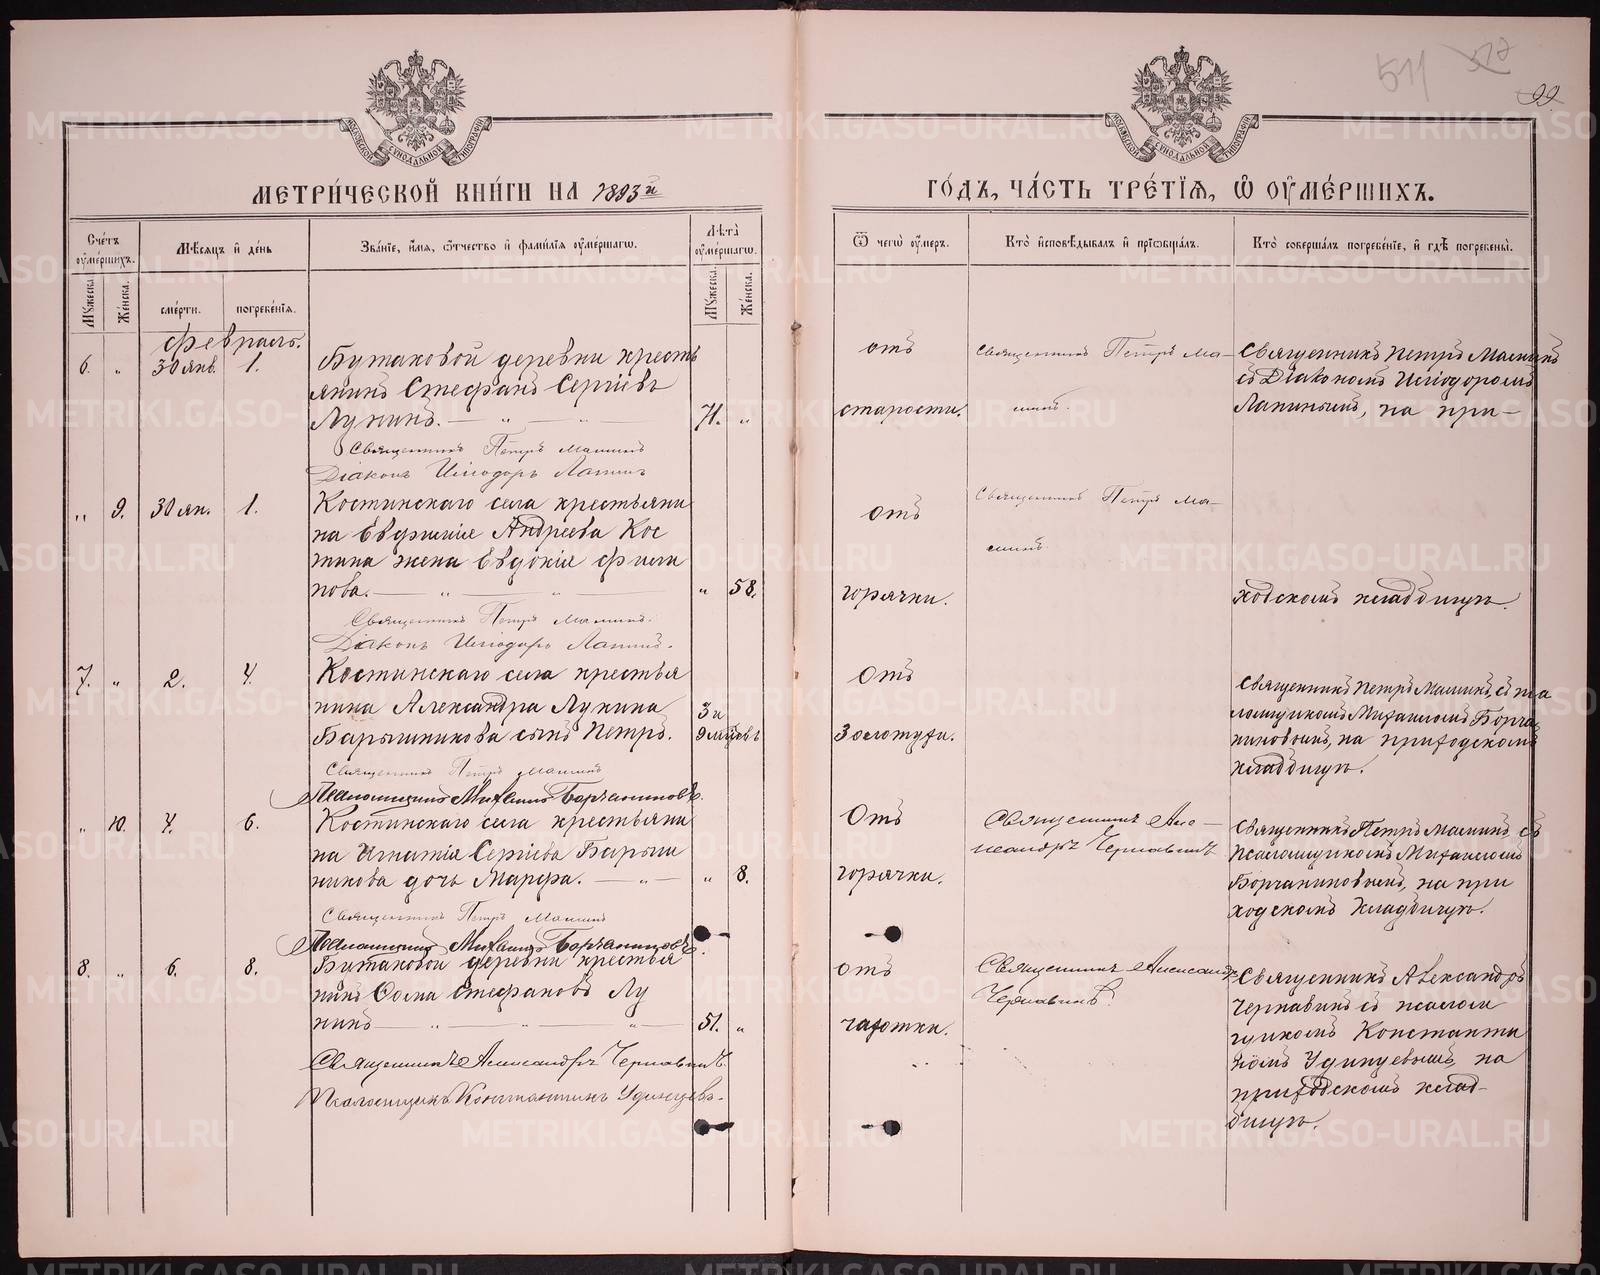 511
99.
МЕТРИ́ЧЕСКОЙ КНИ́ГИ НА 1893й
ГО́ДЪ, ЧА́СТЬ ТРЕ́ТЇѦ, Ѡ҆ ОУ҆МЕ́РШИХЪ.
Сче́тъ оу҆ме́ршихъ.
Мѣ́сѧцъ и҆ де́нь
Зва́нїе, и҆́мѧ, ѻ҆́тчество и҆ фамилїѧ оу҆ме́ршагѡ.
Лѣ́та оу҆ме́ршагѡ.
Мꙋ́жеска.
Же́нска.
сме́рти.
погребе́нїѧ.
Мꙋ́жеска.
Же́нска.
Ѿ чегѡ̀ оу҆́меръ.
Кто̀ и҆сповѣ́дывалъ и҆ прїѡбща́лъ.
Кто̀ соверша́лъ погребе́нїе, и҆ гдѣ̀ погребены̀.
Февраль.
6. „ 30 янв. 1.
Бутаковой деревни кресть
янинъ Стефанъ Сергіевъ
Лунинъ. — „ — „ —
71. „
Священникъ Петръ Мамин
Діаконъ Исидоръ Лапинъ
отъ
старости.
Священникъ Петръ Ма-
минъ.
Священникъ Петръ Маминъ
съ Діакономъ Исидоромъ
Лапинымъ, на при-
„ 9. 30 ян. 1.
Костинскаго села крестьяни
на Евфимія Андреева Кос
тина жена Евдокія Фили
пова. — „ — „ —
„ 58.
Священникъ Петръ Маминъ.
Діаконъ Исидоръ Лапинъ.
отъ
горячки.
Священникъ Петръ Ма-
минъ.
ходскомъ кладбищѣ.
7. „ 2. 4.
Костинскаго села крестья
нина Александра Лукина
Барышникова сынъ Петръ.
3 и
9 мѣсяцевъ
Священникъ Петръ Маминъ
Псаломщикъ Михаилъ Борчаниновъ.
Отъ
Золотухи.
Священникъ Петръ Маминъ, съ пса
ломщикомъ Михаиломъ Борча
ниновымъ, на приходскомъ
кладбищѣ.
„ 10. 4. 6.
Костинскаго села крестьяни
на Игнатія Сергіева Барыш
никова дочь Марѳа. — „ —
„ 8.
Священникъ Петръ Маминъ
Псаломщикъ Михаилъ Борчаниновъ.
Отъ
горячки.
Священникъ Але-
ксандръ Чернавинъ
Священникъ Петръ Маминъ съ
псаломщикомъ Михаиломъ
Борчаниновымъ, на при
ходскомъ кладбищѣ.
8. „ 6. 8.
Бутаковой деревни крестья
нинъ Ѳома Стефановъ Лу
нинъ — „ — „ — „ —
51. „
Священникъ Александръ Чернавинъ.
Псаломщикъ Константинъ Удинцевъ.
отъ
чахотки.
Священникъ Александръ
Чернавинъ.
Священникъ Александръ
Чернавинъ съ псалом
щикомъ Константи
номъ Удинцевымъ, на
приходскомъ клад-
бищѣ.